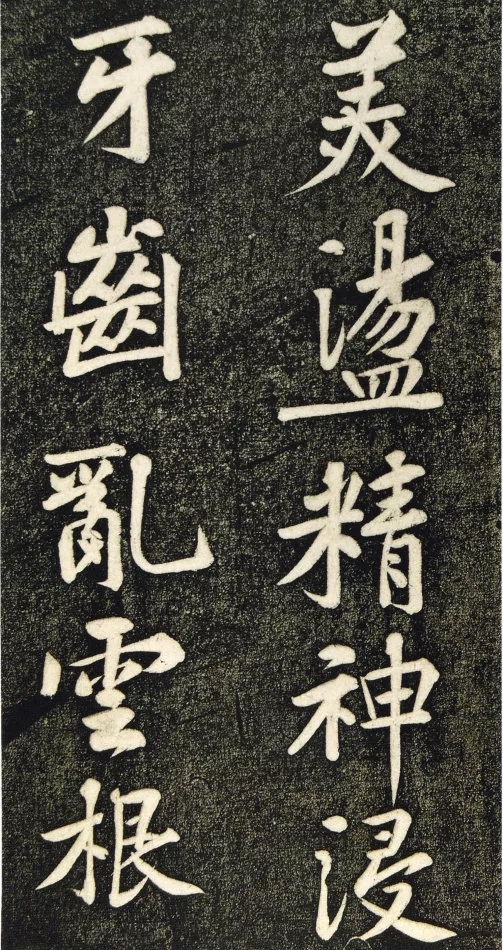 美盪精神浸
牙齒亂雲根